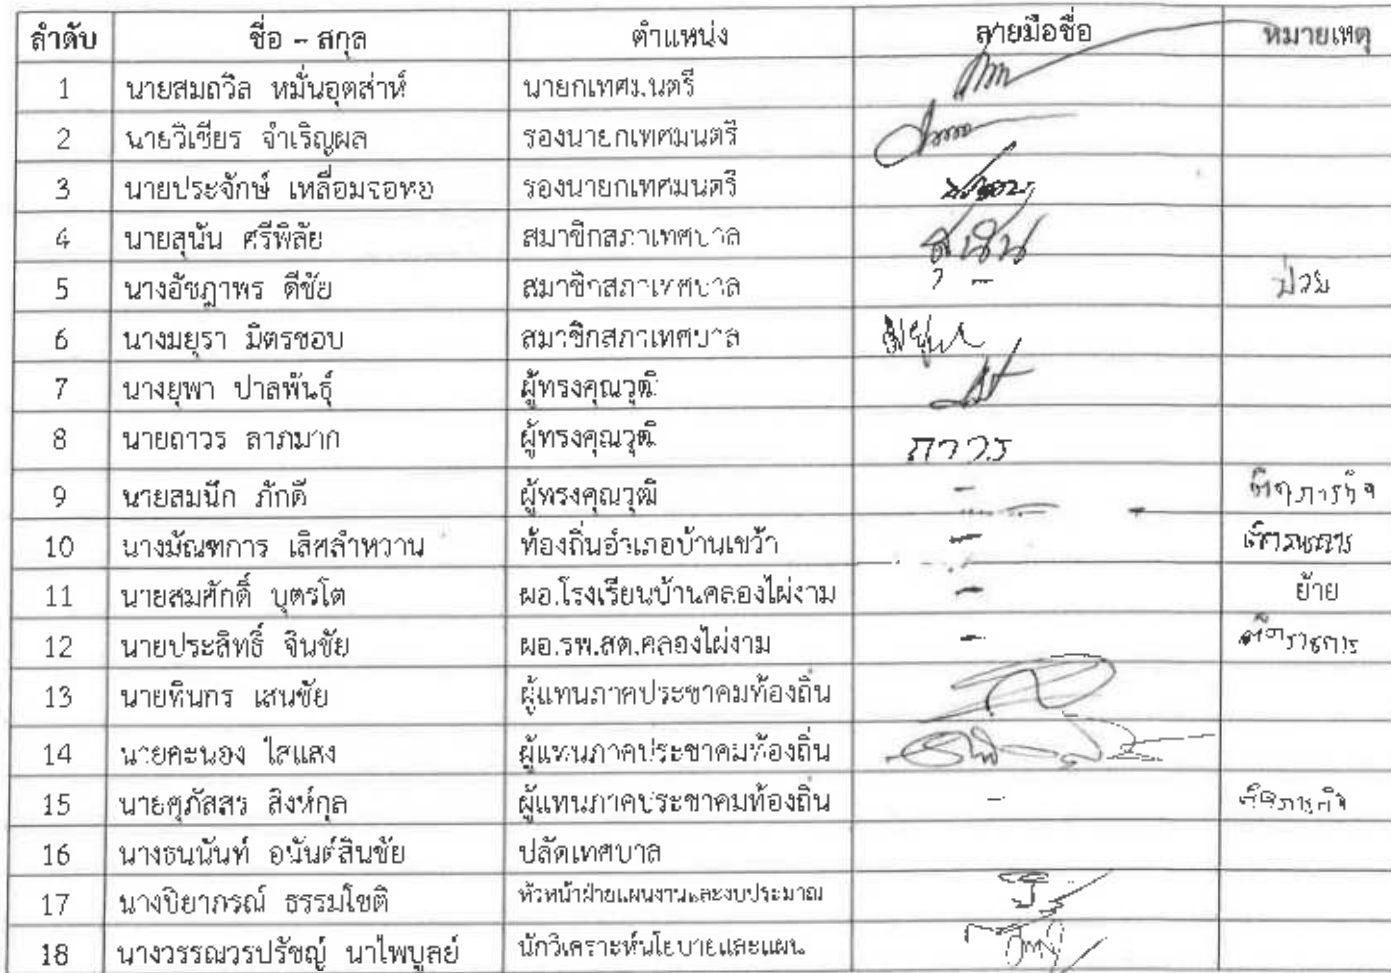 ลำดับ ชื่อ – สกุล ตำแหน่ง ลายมือชื่อ หมายเหตุ
1 นายสมถวิล หมั่นอุตส่าห์ นายกเทศมนตรี
2 นายวิเชียร จำเริญผล รองนายกเทศมนตรี
3 นายประจักษ์ เหลื่อมจอหอ รองนายกเทศมนตรี
4 นายสุนัน ศรีพิลัย สมาชิกสภาเทศบาล
5 นางอัชฎาพร ดีชัย สมาชิกสภาเทศบาล – ป่วย
6 นางมยุรา มิตรชอบ สมาชิกสภาเทศบาล มยุรา
7 นางยุพา ปาลพันธุ์ ผู้ทรงคุณวุฒิ
8 นายถาวร ลาภมาก ผู้ทรงคุณวุฒิ ถาวร
9 นายสมนึก ภักดี ผู้ทรงคุณวุฒิ – ติดภารกิจ
10 นางมัณฑการ เลิศลำหวาน ท้องถิ่นอำเภอบ้านเขว้า –
11 นายสมศักดิ์ บุตรโต ผอ.โรงเรียนบ้านคลองไผ่งาม – ย้าย
12 นายประสิทธิ์ จินชัย ผอ.รพ.สต.คลองไผ่งาม – ติดราชการ
13 นายทินกร เสนชัย ผู้แทนภาคประชาคมท้องถิ่น
14 นายคะนอง ใสแสง ผู้แทนภาคประชาคมท้องถิ่น
15 นายศุภัสสร สิงห์กุล ผู้แทนภาคประชาคมท้องถิ่น – ติดภารกิจ
16 นางธนนันท์ อนันต์สินชัย ปลัดเทศบาล
17 นางปิยาภรณ์ ธรรมโชติ หัวหน้าฝ่ายแผนงานและงบประมาณ
18 นางวรรณวรปรัชญ์ นาไพบูลย์ นักวิเคราะห์นโยบายและแผน